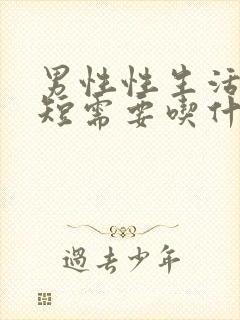 男性性生活
短需要喫什
過去少年